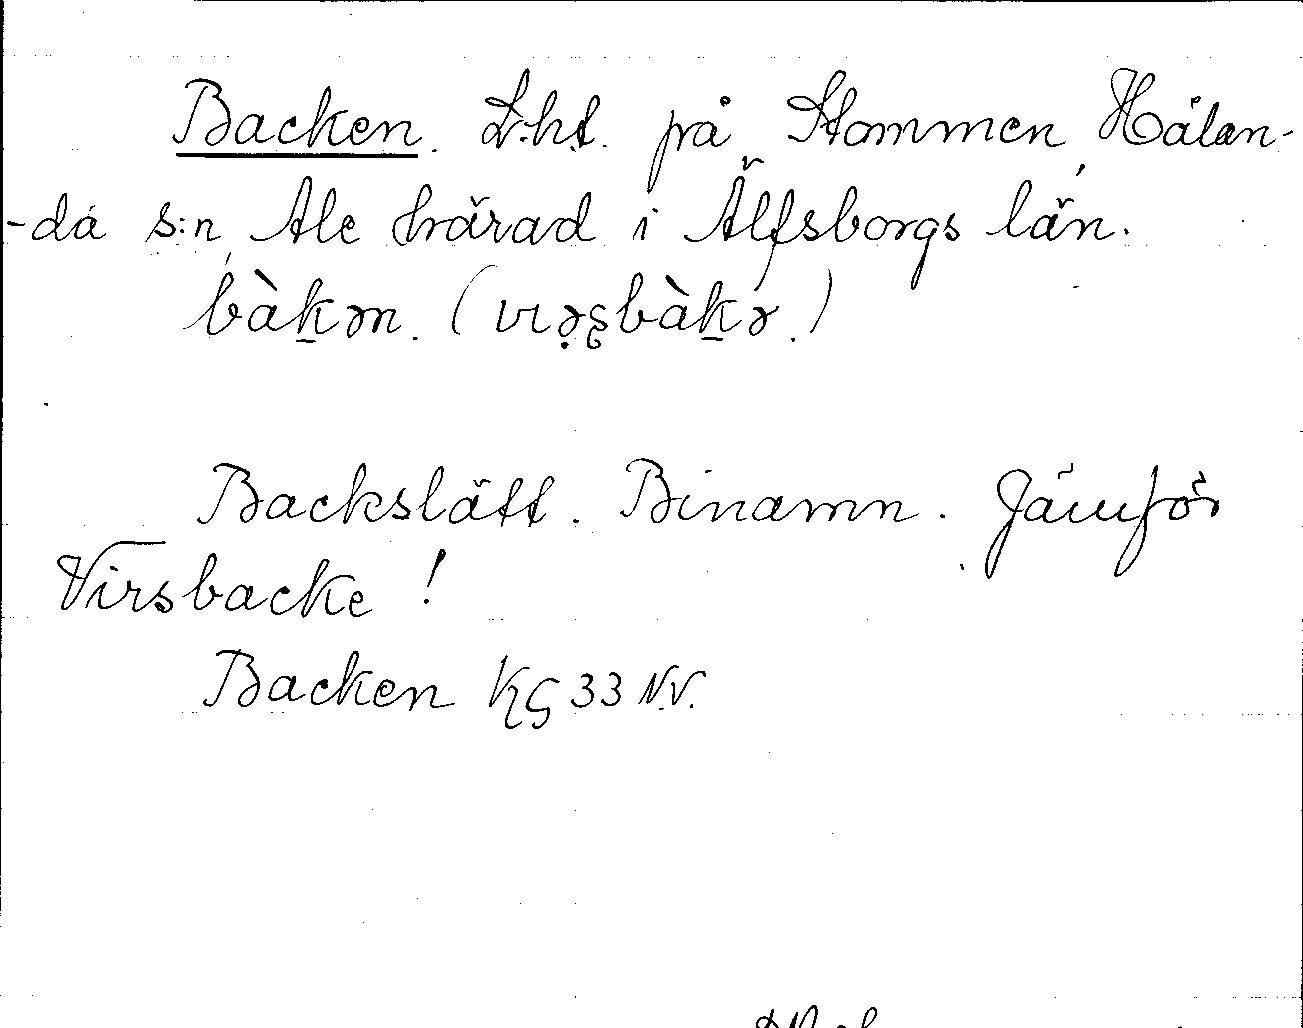 Backen. L:ht. på Stommen, Hålan-
-da s:n, Ale härad i Älfsborgs län.
bàk̲ən. (vɪəʂbàk̲ə.)
Backslätt. Binamn. Jämför
Virsbacke!
Backen KG 33 N.V.